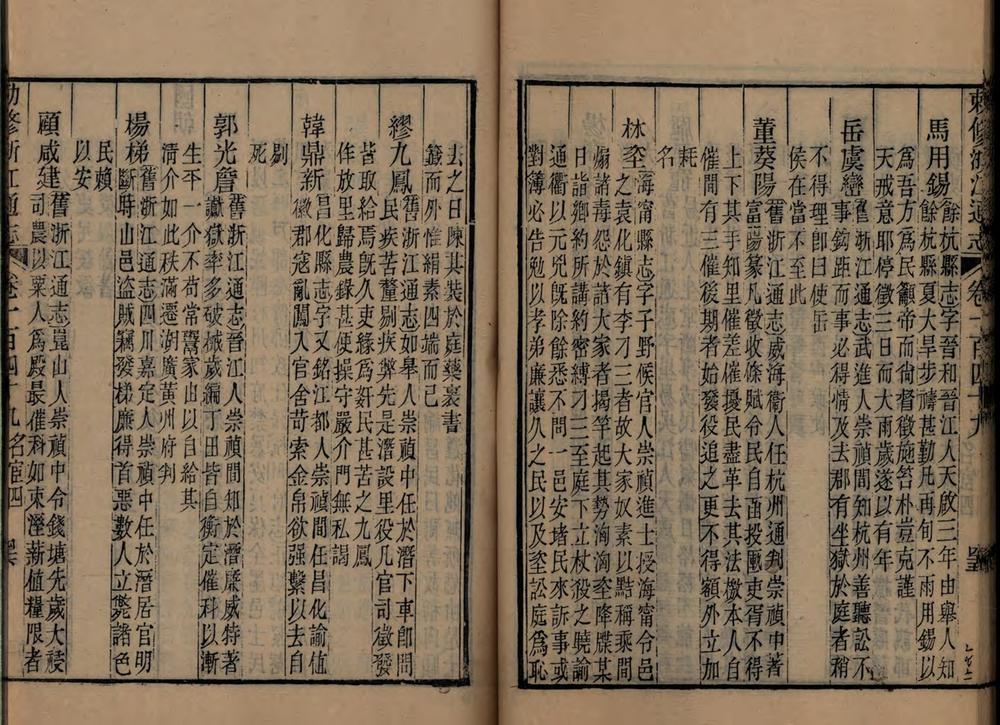 敕修浙江通志 卷一百四十九 名宦四
馬用錫
餘杭縣志字晉和晉江人天啟三年由舉人知
餘杭縣夏大旱步禱甚勤凡再旬不雨用錫以
爲吾方爲民籲帝而尙督徵施笞朴豈克謹
天戒意耶停徵三日而大雨歲遂以有年
岳虞巒
舊浙江通志武進人崇禎間知杭州善聽訟不
事鈎距而事必得情及去郡有坐獄於庭者稍
不得理卽曰使岳
侯在當不至此
董葵陽
舊浙江通志威海衞人任杭州通判崇禎中著
富陽篆凡徵收條賦令民自函投匭吏胥不得
上下其手知里催差催擾民盡革去其法檄本人自
催間有三催後期者始發役追之更不得額外立加
耗
名
林垐
海甯縣志字子野候官人崇禎進士授海甯令邑
之袁化鎮有李刁三者故大家奴素以黠稱乘間
煽諸毒怨於諸大家者揭竿起其勢洶洶垐降牒某
日詣鄉約所講約密縛刁三至庭下立杖役之曉諭
通衢以元兇旣除餘悉不問一邑安堵民來訴事或
對簿必告勉以孝弟廉讓久之民以及垐訟庭爲恥
去之日陳其裝於庭藥裹書
籢而外惟絹素四端而已
繆九鳳
舊浙江通志如皋人崇禎中任於潛下車卽問
民疾苦釐剔疾弊先是潛設里役凡官司徵發
皆取給焉旣久吏緣爲奸民甚苦之九鳳
侔放里歸農錄甚便操守嚴介門無私謁
韓鼎新
昌化縣志字又銘江都人崇禎間任昌化諭值
徽郡寇亂闖入官舍苛索金帛欲强繫以去自
剔
死
郭光詹
舊浙江通志晉江人崇禎間知於潛廉威特著
讞獄率多破械歲編丁田皆自衡定催科以漸
生平一介不苟常鬻家出以自給其
清介如此秩滿遷湖廣黄州府判
楊梯
舊浙江通志四川嘉定人崇禎中任於潛居官明
斷時山邑盜賊竊發梯廉得首惡數人立斃諸色
民賴
以安
顧咸建
舊浙江通志崑山人崇禎中令錢塘先歲大祲
司農以粟人爲殿最催科如束溼薪値糧限者
勅修浙江通志 卷一百四十九 名宦四